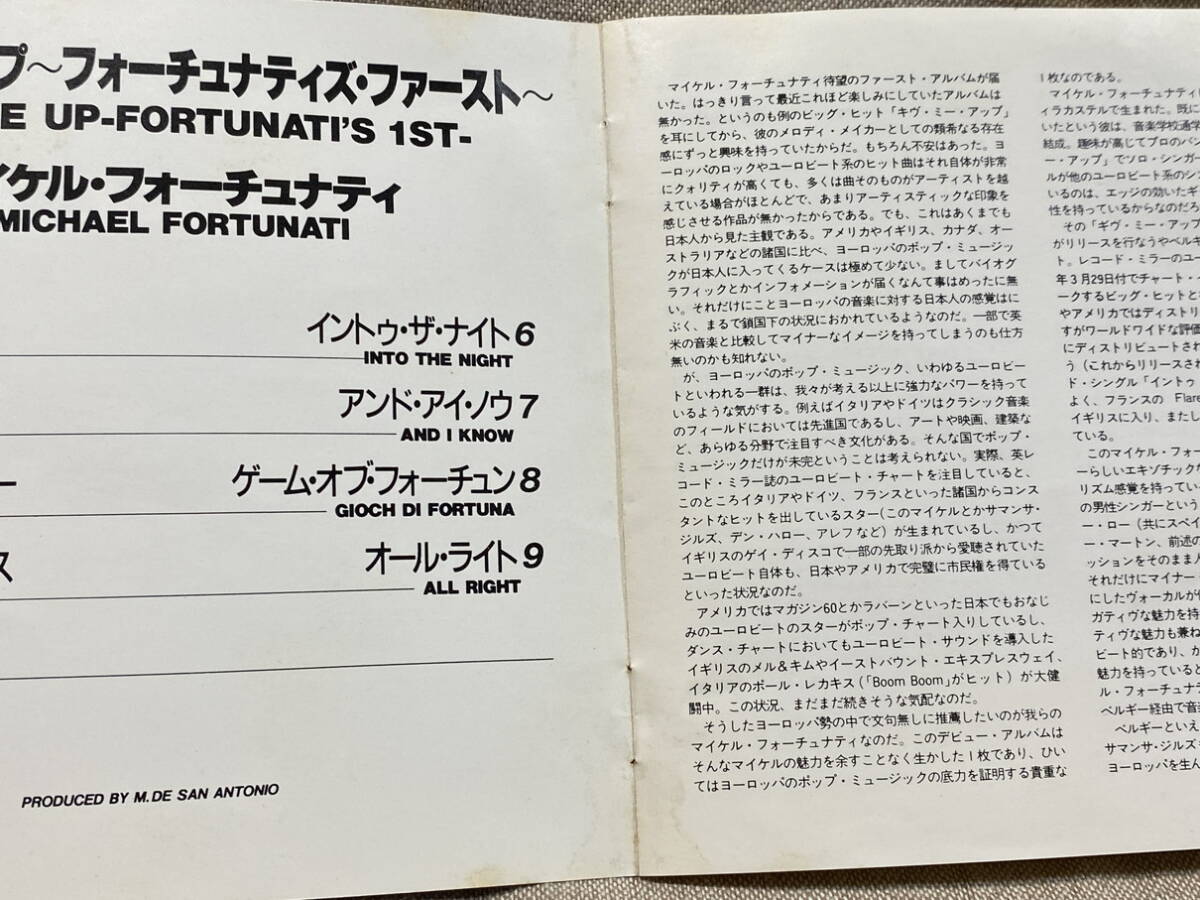 プ〜フォーチュナティズ・ファースト〜
E UP-FORTUNATI'S 1ST-
イケル・フォーチュナティ
MICHAEL FORTUNATI
イントゥ・ザ・ナイト6
INTO THE NIGHT
アンド・アイ・ノウ7
AND I KNOW
ー
ゲーム・オブ・フォーチュン8
GIOCH DI FORTUNA
ス
オール・ライト9
ALL RIGHT
PRODUCED BY M.DE SAN ANTONIO
マイケル・フォーチュナティ待望のファースト・アルバムが届
いた。はっきり言って最近これほど楽しみにしていたアルバムは
無かった。というのも例のビッグ・ヒット「ギヴ・ミー・アップ」
を耳にしてから、彼のメロディ・メイカーとしての類希なる存在
感にずっと興味を持っていたからだ。もちろん不安はあった。ヨ
ーロッパのロックやユーロビート系のヒット曲はそれ自体が非常
にクォリティが高くても、多くは曲そのものがアーティストを越
えている場合がほとんどで、あまりアーティスティックな印象を
感じさせる作品が無かったからである。でも、これはあくまでも
日本人から見た主観である。アメリカやイギリス、カナダ、オー
ストラリアなどの諸国に比べ、ヨーロッパのポップ・ミュージッ
クが日本人に入ってくるケースは極めて少ない。ましてバイオグ
ラフィックとかインフォメーションが届くなんて事はめったに無
い。それだけにことヨーロッパの音楽に対する日本人の感覚はに
ぶく、まるで鎖国下の状況におかれているようなのだ。一部で英
米の音楽と比較してマイナーなイメージを持ってしまうのも仕方
無いのかも知れない。
が、ヨーロッパのポップ・ミュージック、いわゆるユーロビー
トといわれる一群は、我々が考える以上に強力なパワーを持って
いるような気がする。例えばイタリアやドイツはクラシック音楽
のフィールドにおいては先進国であるし、アートや映画、建築な
ど、あらゆる分野で注目すべき文化がある。そんな国でポップ・
ミュージックだけが未完ということは考えられない。実際、英レ
コード・ミラー誌のユーロビート・チャートを注目していると、
このところイタリアやドイツ、フランスといった諸国からコンス
タントなヒットを出しているスター(このマイケルとかサマンサ・
ジルズ、デン・ハロー、アレフなど）が生まれているし、かつて
イギリスのゲイ・ディスコで一部の先取り派から愛聴されていた
ユーロビート自体も、日本やアメリカで完璧に市民権を得ている
といった状況なのだ。
アメリカではマガジン60とかラバーンといった日本でもおなじ
みのユーロビートのスターがポップ・チャート入りしているし、
ダンス・チャートにおいてもユーロビート・サウンドを導入した
イギリスのメル＆キムやイーストバウント・エキスプレスウェイ、
イタリアのポール・レカキス(「Boom Boom」がヒット）が大健
闘中。この状況、まだまだ続きそうな気配なのだ。
そうしたヨーロッパ勢の中で文句無しに推薦したいのが我らの
マイケル・フォーチュナティなのだ。このデビュー・アルバムは
そんなマイケルの魅力を余すことなく生かした1枚であり、ひい
てはヨーロッパのポップ・ミュージックの底力を証明する貴重な
1枚なのである。
マイケル・フォーチュナティ
ィラカステルで生まれた。既に
いたという彼は、音楽学校通学
結成。趣味が高じてプロのバン
ー・アップ」でソロ・シンガー
ルが他のユーロビート系のシン
いるのは、エッジの効いたギ
性を持っているからなのだろ
その「ギヴ・ミー・アップ
がリリースを行なうやベルギ
ト。レコード・ミラーのユー
年3月29日付でチャート・イ
ークするビッグ・ヒットと
やアメリカではディストリ
すがワールドワイドな評価
にディストリビュートされ
う（これからリリースされ
ド・シングル「イントゥ
よく、フランスの Flare
イギリスに入り、また
ている。
このマイケル・フォー
ーらしいエキゾチックな
リズム感覚を持ってい
の男性シンガーという
ー・ロー（共にスペイ
ー・マートン、前述の
ッションをそのまま
それだけにマイナー
にしたヴォーカルが
ガティヴな魅力を持
ティヴな魅力も兼ね
ビート的であり、か
魅力を持っていると
ル・フォーチュナテ
ベルギー経由で音
ベルギーといえ
サマンサ・ジルズ
ヨーロッパを生ん